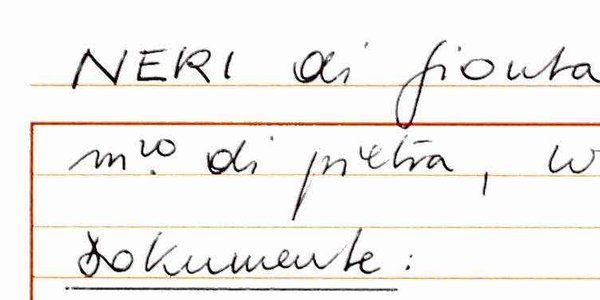 NERI di Giouta
m.ro di pietra, w
Dokumente: